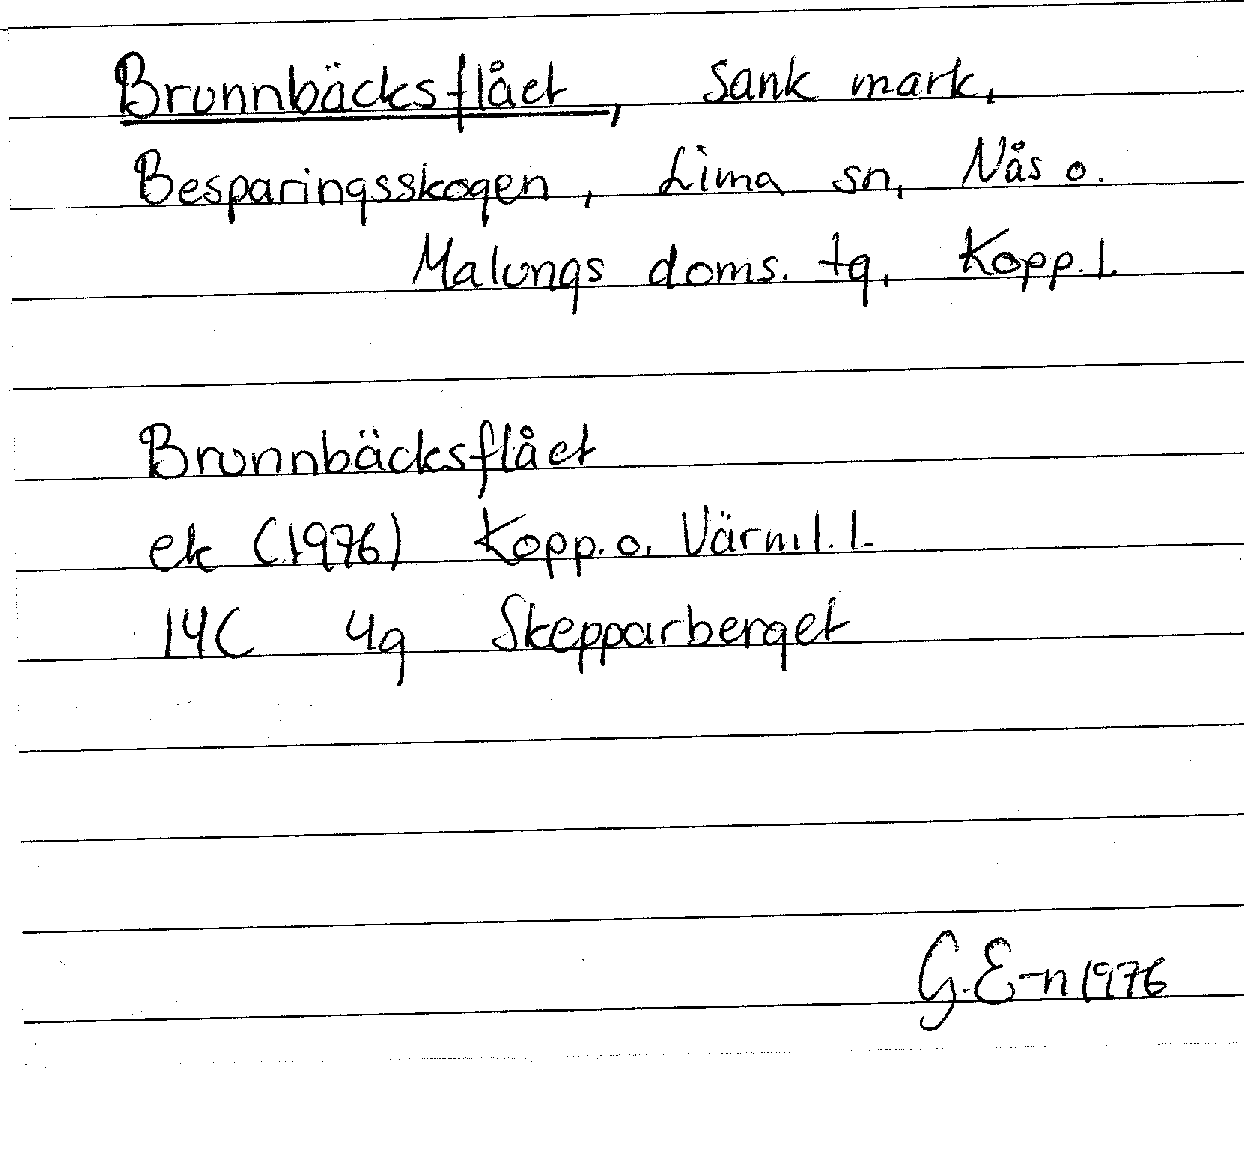 Brunnbäcksflået, sank mark,
Besparingsskogen, Lima sn, Nås o.
Malungs doms. tg, Kopp. l.
Brunnbäcksflået
ek (1976) Kopp. o. Värml. l.
14C 4g Skepparberget
G. E-n 1976